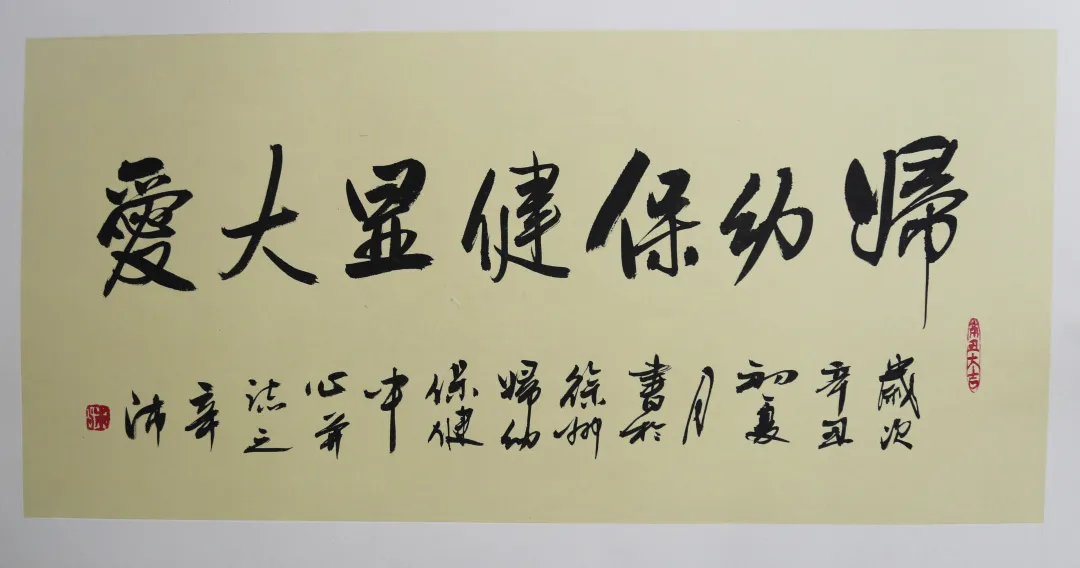 婦幼保健显大愛
辛丑大吉
歲次
辛丑
初夏
月
書於
徐州
婦幼
保健
中
心并
誌之
辛
沛